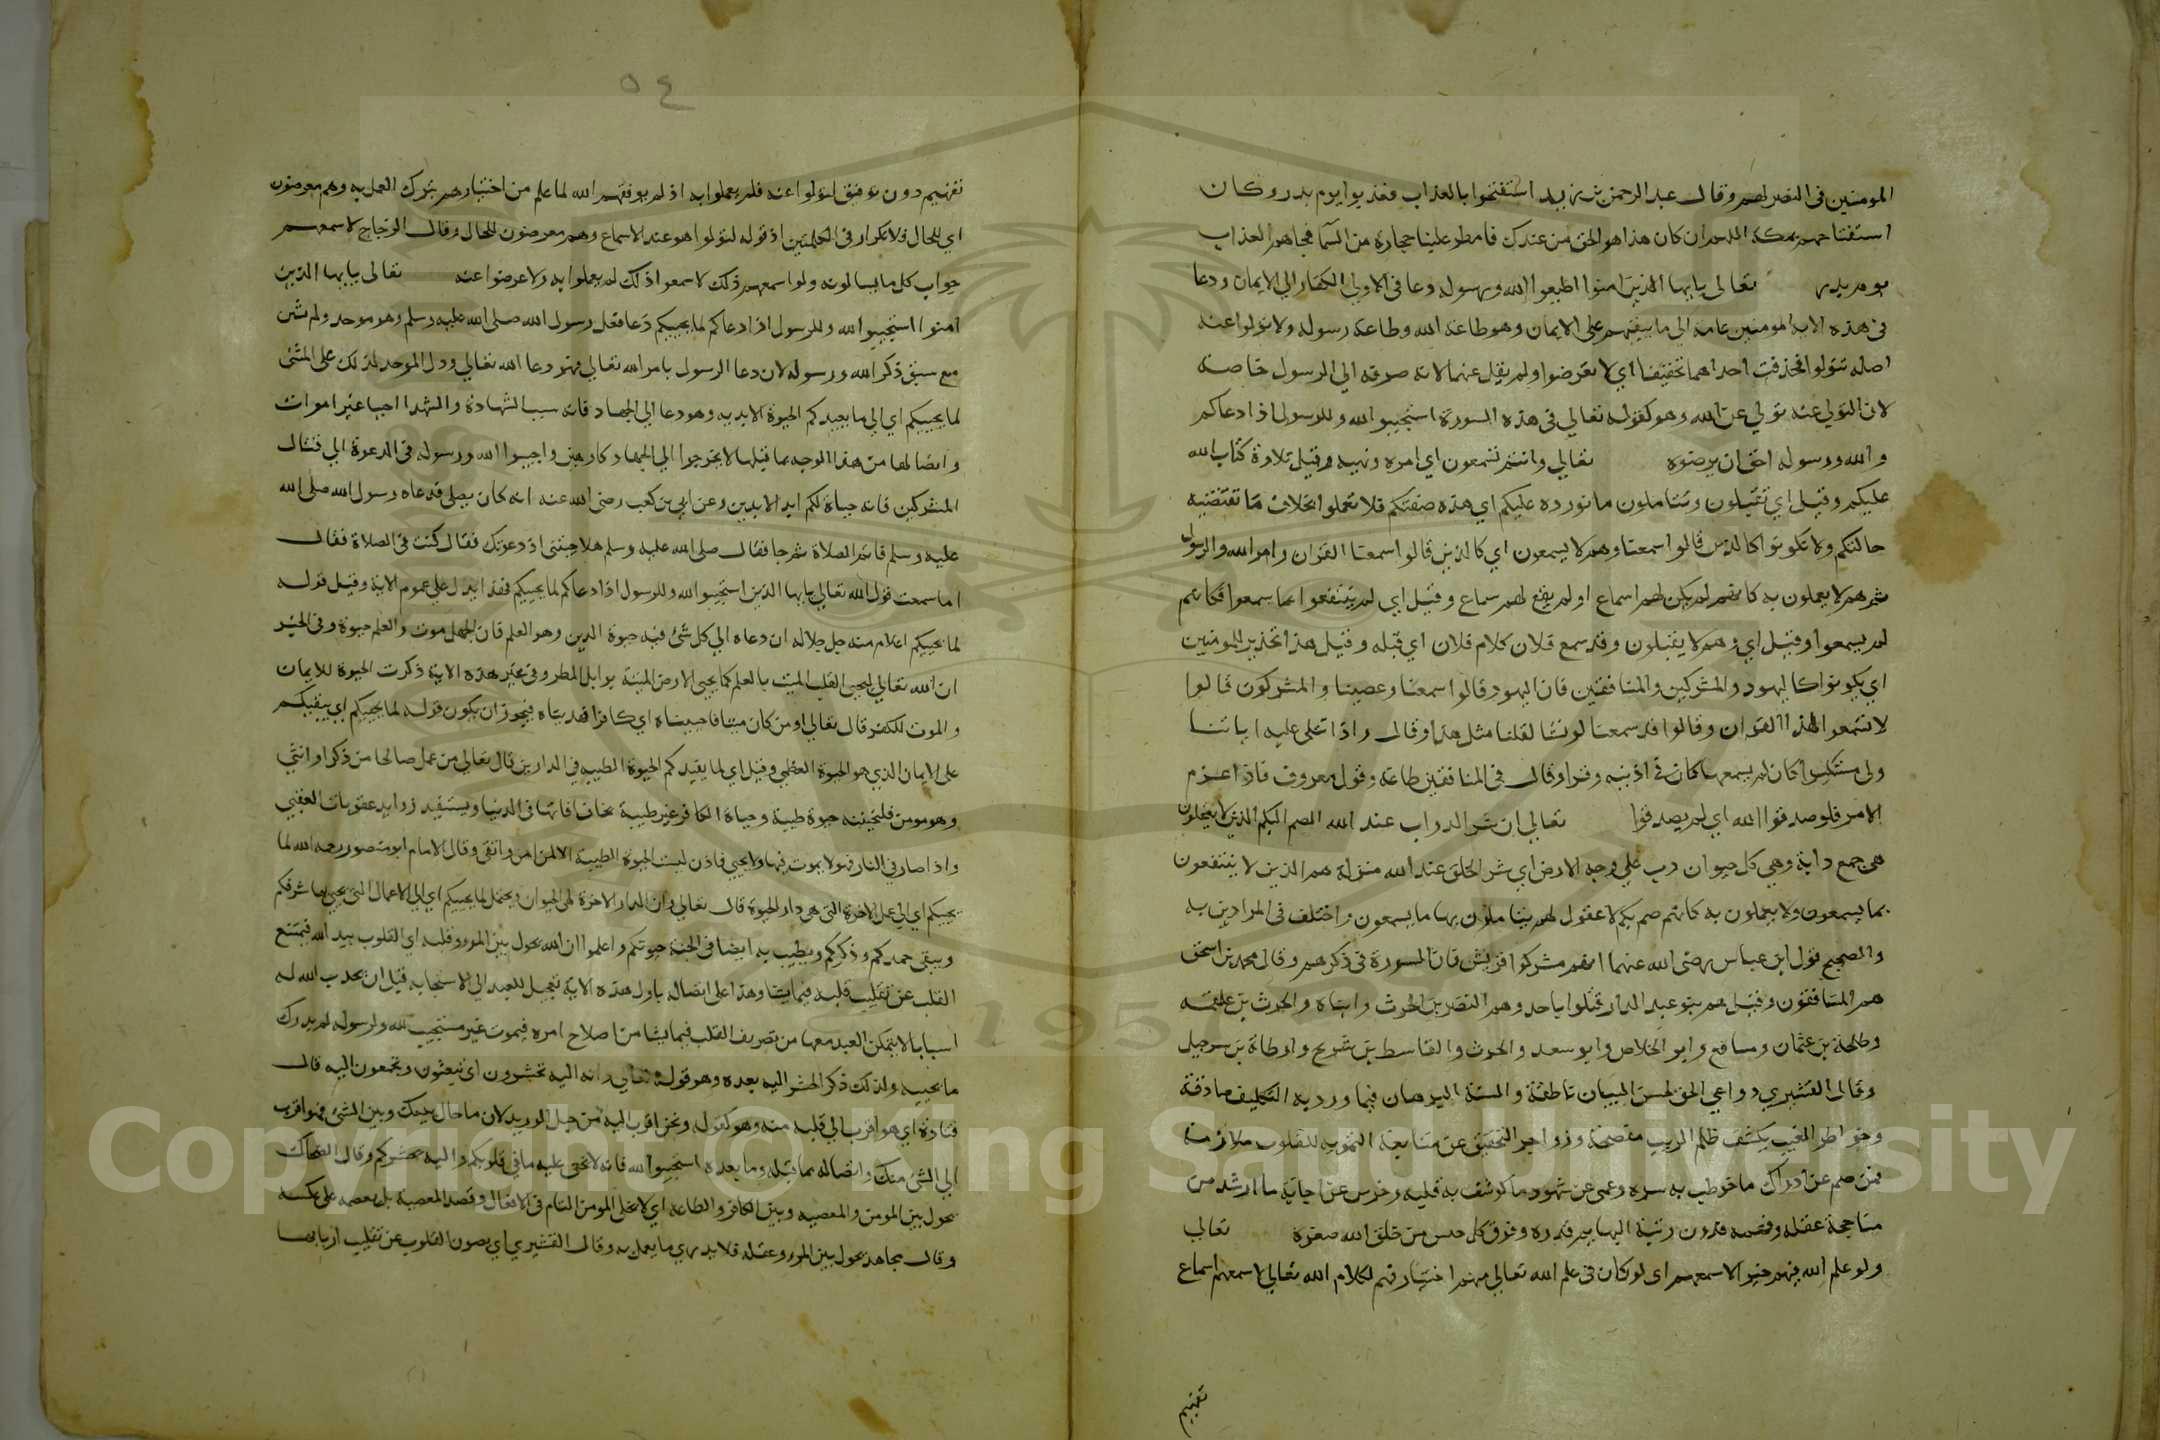 المومنين في النصر لهم وقال عبد الرحمن بن زيد استفتحوا بالعذاب فعذبوا يوم بدر وكان
استفتاحهم بمكة اللهم ان كان هذا هو الحق من عندك فامطر علينا حجارة من السما فجاهم العذاب
يوم بدر تعالى يايها الذين امنوا اطيعوا الله ورسوله دعا في الاولى الكفار الى الايمان ودعا
في هذه الاية المومنين عامة الى ما يبقيهم على الايمان وهو طاعة الله وطاعة رسوله ولا تولوا عنه
اصله تتولوا فحذفت احداهما تخفيفا اي لا تعرضوا ولم يقل عنهما لانه صرفه الى الرسول خاصة
لان التولي عنه تولي عن الله وهو كقوله تعالى في هذه السورة استجيبوا لله وللرسول اذا دعاكم
والله ورسوله احق ان يرضوه تعالى وانتم تسمعون اي امره ونهيه وقيل تلاوة كتاب الله
عليكم وقيل اي تقبلون وتتاملون ما نورده عليكم اي هذه صفتكم فلا تعملوا بخلاف ما تقتضيه
حالتكم ولا تكونوا كالذين قالوا سمعنا وهم لا يسمعون اي كالذين قالوا سمعنا القران وامر الله والرسول
ثم هم لا يعملون به كانهم لم يكن لهم اسماع او لم يقع لهم سماع وقيل اي لم ينتفعوا بما سمعوا فكانهم
لم يسمعوا وقيل اي وهم لا يقبلون وقد سمع فلان كلام فلان اي قبله وقيل هذا تحذير للمومنين
اي يكونوا كاليهود والمشركين والمنافقين فان اليهود قالوا سمعنا وعصينا والمشركون قالوا
لا تسمعوا لهذا القران وقالوا قد سمعنا لو نشا لقلنا مثل هذا وقال واذا تتلى عليه اياتنا
ولى مستكبرا كان لم يسمعها كان في اذنيه وقرا وقال في المنافقين طاعة وقول معروف فاذا عزم
الامر فلو صدقوا الله اي لم يصدقوا تعالى ان شر الدواب عند الله الصم البكم الذين لا يعقلون
هي جمع دابة وهي كل حيوان دب على وجه الارض اي شر الخلق عند الله منزلة هم الذين لا ينتفعون
بما يسمعون ولا يعملون به كانهم صم بكم لا عقول لهم يتاملون بها ما يسمعون واختلف في المرادين به
والصحيح قول ابن عباس رضى الله عنهما انهم مشركوا قريش فان السورة في ذكرهم وقال محمد بن اسحق
هم المنافقون وقيل هم بنو عبد الدار قتلوا باحد وهم النضر بن الحرث وابناه والحرث بن علقمه
وطلحة بن عثمان ومسافع وابو الجلاس وابو سعد والحرث والقاسط بن شريح وارطاة بن سرحبيل
وقال القشيري دواعي الحق لحسن البيان ناطقة والسنة البرهان فيما ورد به التكليف صادقة
وخواطر الغيب بكشف ظلم الريب مفصحة وزواجر التحقيق عن متابعة التمويه للقلوب ملازمة
فمن صم عن ادراك ما خوطب به سره وعمي عن شهود ما كوشف به قلبه وخرس عن اجابة ما ارشد من
مناجحة عقله وفهمه فدون رتبة البهايم قدره وفوق كل خسيس من خلق الله صغره تعالى
ولو علم الله فيهم خيرا لاسمعهم اى لو كان في علم الله تعالى منهم اختيار فهم لكلام الله تعالى لاسمعهم اسماع
تفهيم
٥٤
تفهيم دون توفيق لتولوا عنه فلم يعملوا به اذ لم يوفقهم الله لما علم من اختيارهم ترك العمل به وهم معرضون
اي للحال فلا تكرار في الكلمتين اذ قوله لتولوا هو عند الاسماع وهم معرضون للحال وقال الزجاج لاسمعهم
جواب كل ما يسالونه ولو اسمعهم ذلك لاسمعوا ذلك لم يعملوا به ولاعرضوا عنه تعالى يايها الذين
امنوا استجيبوا لله وللرسول اذا دعاكم لما يحييكم دعا فعل رسول الله صلى الله عليه وسلم وهو موحد ولم يثن
مع سبق ذكر الله ورسوله لان دعا الرسول بامر الله تعالى فهو دعا الله تعالى ودل الموحد لذلك على المثنى
لما يحييكم اي الى ما يفيدكم الحيوة الابدية وهو دعا الى الجهاد فانه سبب الشهادة والشهدا احيا غير اموات
واتصالها من هذا الوجه بما قبلها لا يخرجوا الى الجهاد كارهين واجيبوا الله ورسوله في الدعوة الى قتال
المشركين فانه حياة لكم ابد الابدين وعن ابي بن كعب رضى الله عنه انه كان يصلي فدعاه رسول الله صلى الله
عليه وسلم فاتم الصلاة ثم جا فقال صلى الله عليه وسلم هلا جيتني اذ دعوتك فقال كنت في الصلاة فقال
اما سمعت قول الله تعالى يايها الذين استجيبوا لله وللرسول اذا دعاكم لما يحييكم فهذا يدل على عموم الاية وقيل قوله
لما يحييكم اعلام منه جل جلاله ان دعاه الى كل شئ فيه حيوة الدين وهو العلم فان الجهل موت والعلم حيوة وفي الخبر
ان الله تعالى ليحيى القلب الميت بالعلم كما يحيى الارض الميتة بوابل المطر وفي غير هذه الاية ذكرت الحيوة للايمان
والموت للكفر قال تعالى اومن كان ميتا فاحييناه اي كافرا فهديناه فيجوز ان يكون قوله لما يحييكم اي يبقيكم
على الايمان الذي هو الحيوة العظمى وقيل اي لما يفيدكم الحيوة الطيبه في الدارين قال تعالى من عمل صالحا من ذكر او انثى
وهو مومن فلنحيينه حيوة طيبة وحياة الكافر غير طيبة بخلافها في الدنيا ويستفيد زوايد عقوبات العقبى
واذا صار في النار فهو لا يموت فيها ولا يحيى فاذن ليست الحيوة الطيبة الا لمن امن واتقى وقال الامام ابو منصور رحمه الله لما
يحييكم اي الى عمل الاخرة التي هي دار الحيوة قال تعالى وان الدار الاخرة لهى الحيوان ويحتمل لما يحييكم اي الى الاعمال التي يحيى بها شرفكم
ويبقى حمدكم وذكركم ويطيب به ايضا في الجنة حيوتكم واعلموا ان الله يحول بين المرء وقلبه اي القلوب بيد الله فيمتنع
القلب عن تقليب قلبه فيما يشا وهذا على اتصاله باول هذه الاية تعجيل للعبد الى الاستجابه قبل ان يحدث الله له
اسبابا لا يتمكن العبد معها من تصريف القلب فيما يشا من اصلاح امره فيموت غير مستجيب لله ولرسوله لم يدرك
ما يحييه ولذلك ذكر الحشر اليه بعده وهو قوله تعالى وانه اليه تحشرون اى تبعثون وتجمعون اليه قال
قتادة اي هو اقرب الى قلبه منه وهو كقوله ونحن اقرب اليه من حبل الوريد لان ما حال بينك وبين الشئ فهو اقرب
الى الشئ منك واتصاله بما قبله وما بعده استجيبوا لله فانه لا تخفى عليه ما في قلوبكم واليه حشركم وقال الضحاك
يحول بين المومن والمعصيه وبين الكافر والطاعة اي لا يخلى المومن التام في الافعال وقصد المعصية بل يعصمه على عكسه
وقال مجاهد يحول بين المرء وعقله فلا يدري ما يعمل به وقال القشيري اي يصون القلوب عن تقليب اربابها
Copyright © King Saud University
1957